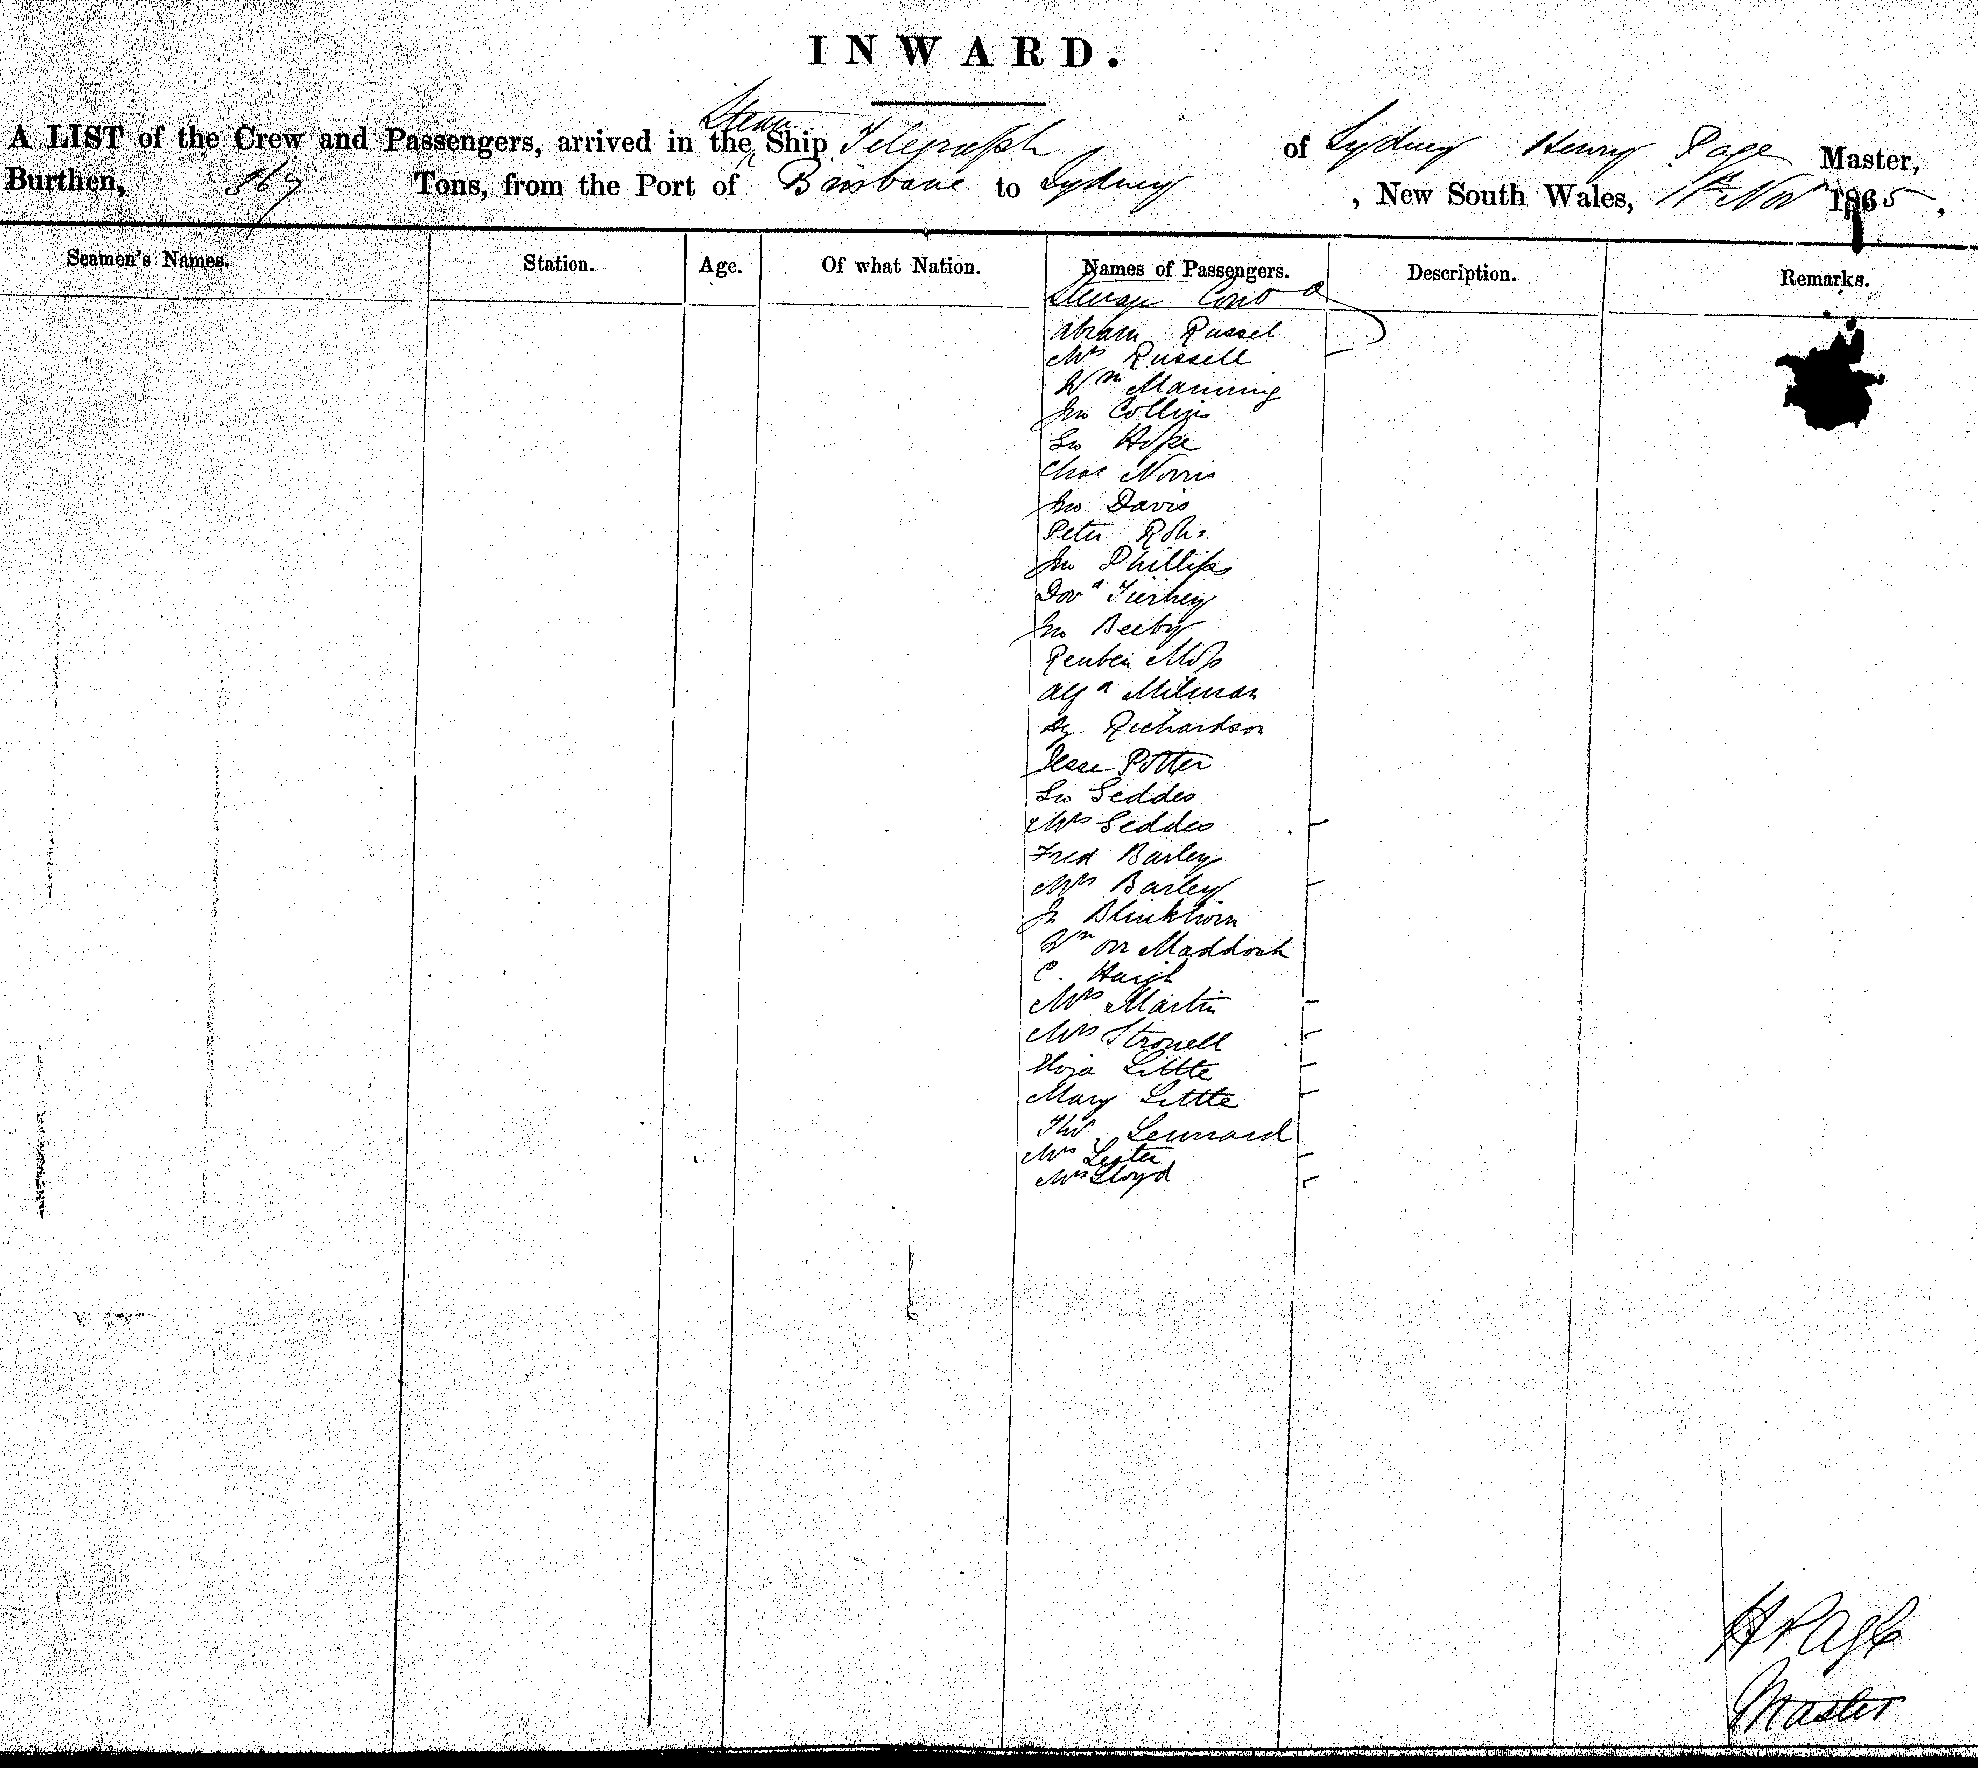 INWARD.
Steam
A LIST of the Crew and Passengers, arrived in the Ship Telegraph of Sydney Henry Page Master,
Burthen, 367 Tons, from the Port of Brisbane to Sydney , New South Wales, 1st Nov 1865 .
Seamen's Names. Station. Age. Of what Nation. Names of Passengers. Description. Remarks.
Steerage Cont d
Abram Russel
Mrs Russell
Wm Manning
Jno Collins
Hope
Chas Norris
Jno Davis
Peter
Jno Phillips
Tierney
Jno Beeby
Reuben Moss
Milman
Hy Richardson
Jesse Potter
Geo Geddes
Mrs Geddes
Fred Barley
Mrs Barley
Jn Blinkhorn
Wm Orr Maddock
C. Haigh
Mrs Martin
Mrs Stronell
Eliza Little
Mary Little
Thos Lennard
Mrs Lester
Mrs Lloyd
H Page
Master